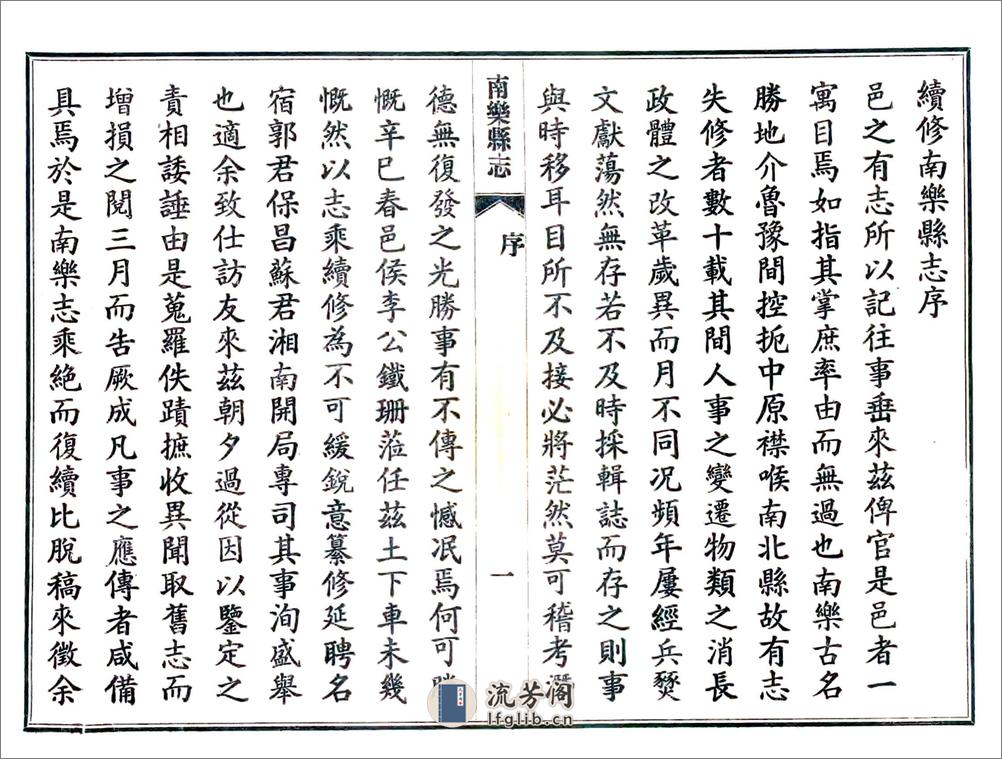 續修南樂縣志序
邑之有志所以記往事垂來茲俾官是邑者一
寓目焉如指其掌庶率由而無過也南樂古名
勝地介魯豫間控扼中原襟喉南北縣故有志
失修者數十載其間人事之變遷物類之消長
政體之改革歲異而月不同況頻年屢經兵燹
文獻蕩然無存若不及時採輯誌而存之則事
與時移耳目所不及接必將茫然莫可稽考
南樂縣志
序
一
德無復發之光勝事有不傳之憾泯焉何可
慨辛巳春邑侯李公鐵珊蒞任茲土下車未幾
慨然以志乘續修為不可緩銳意纂修延聘名
宿郭君保昌蘇君湘南開局專司其事洵盛舉
也適余致仕訪友來茲朝夕過從因以鑒定之
責相諉諈由是蒐羅佚蹟摭收異聞取舊志而
增損之閱三月而告厥成凡事之應傳者咸備
具焉於是南樂志乘絕而復續比脫稿來徵余
流芳阁
lfglib.cn